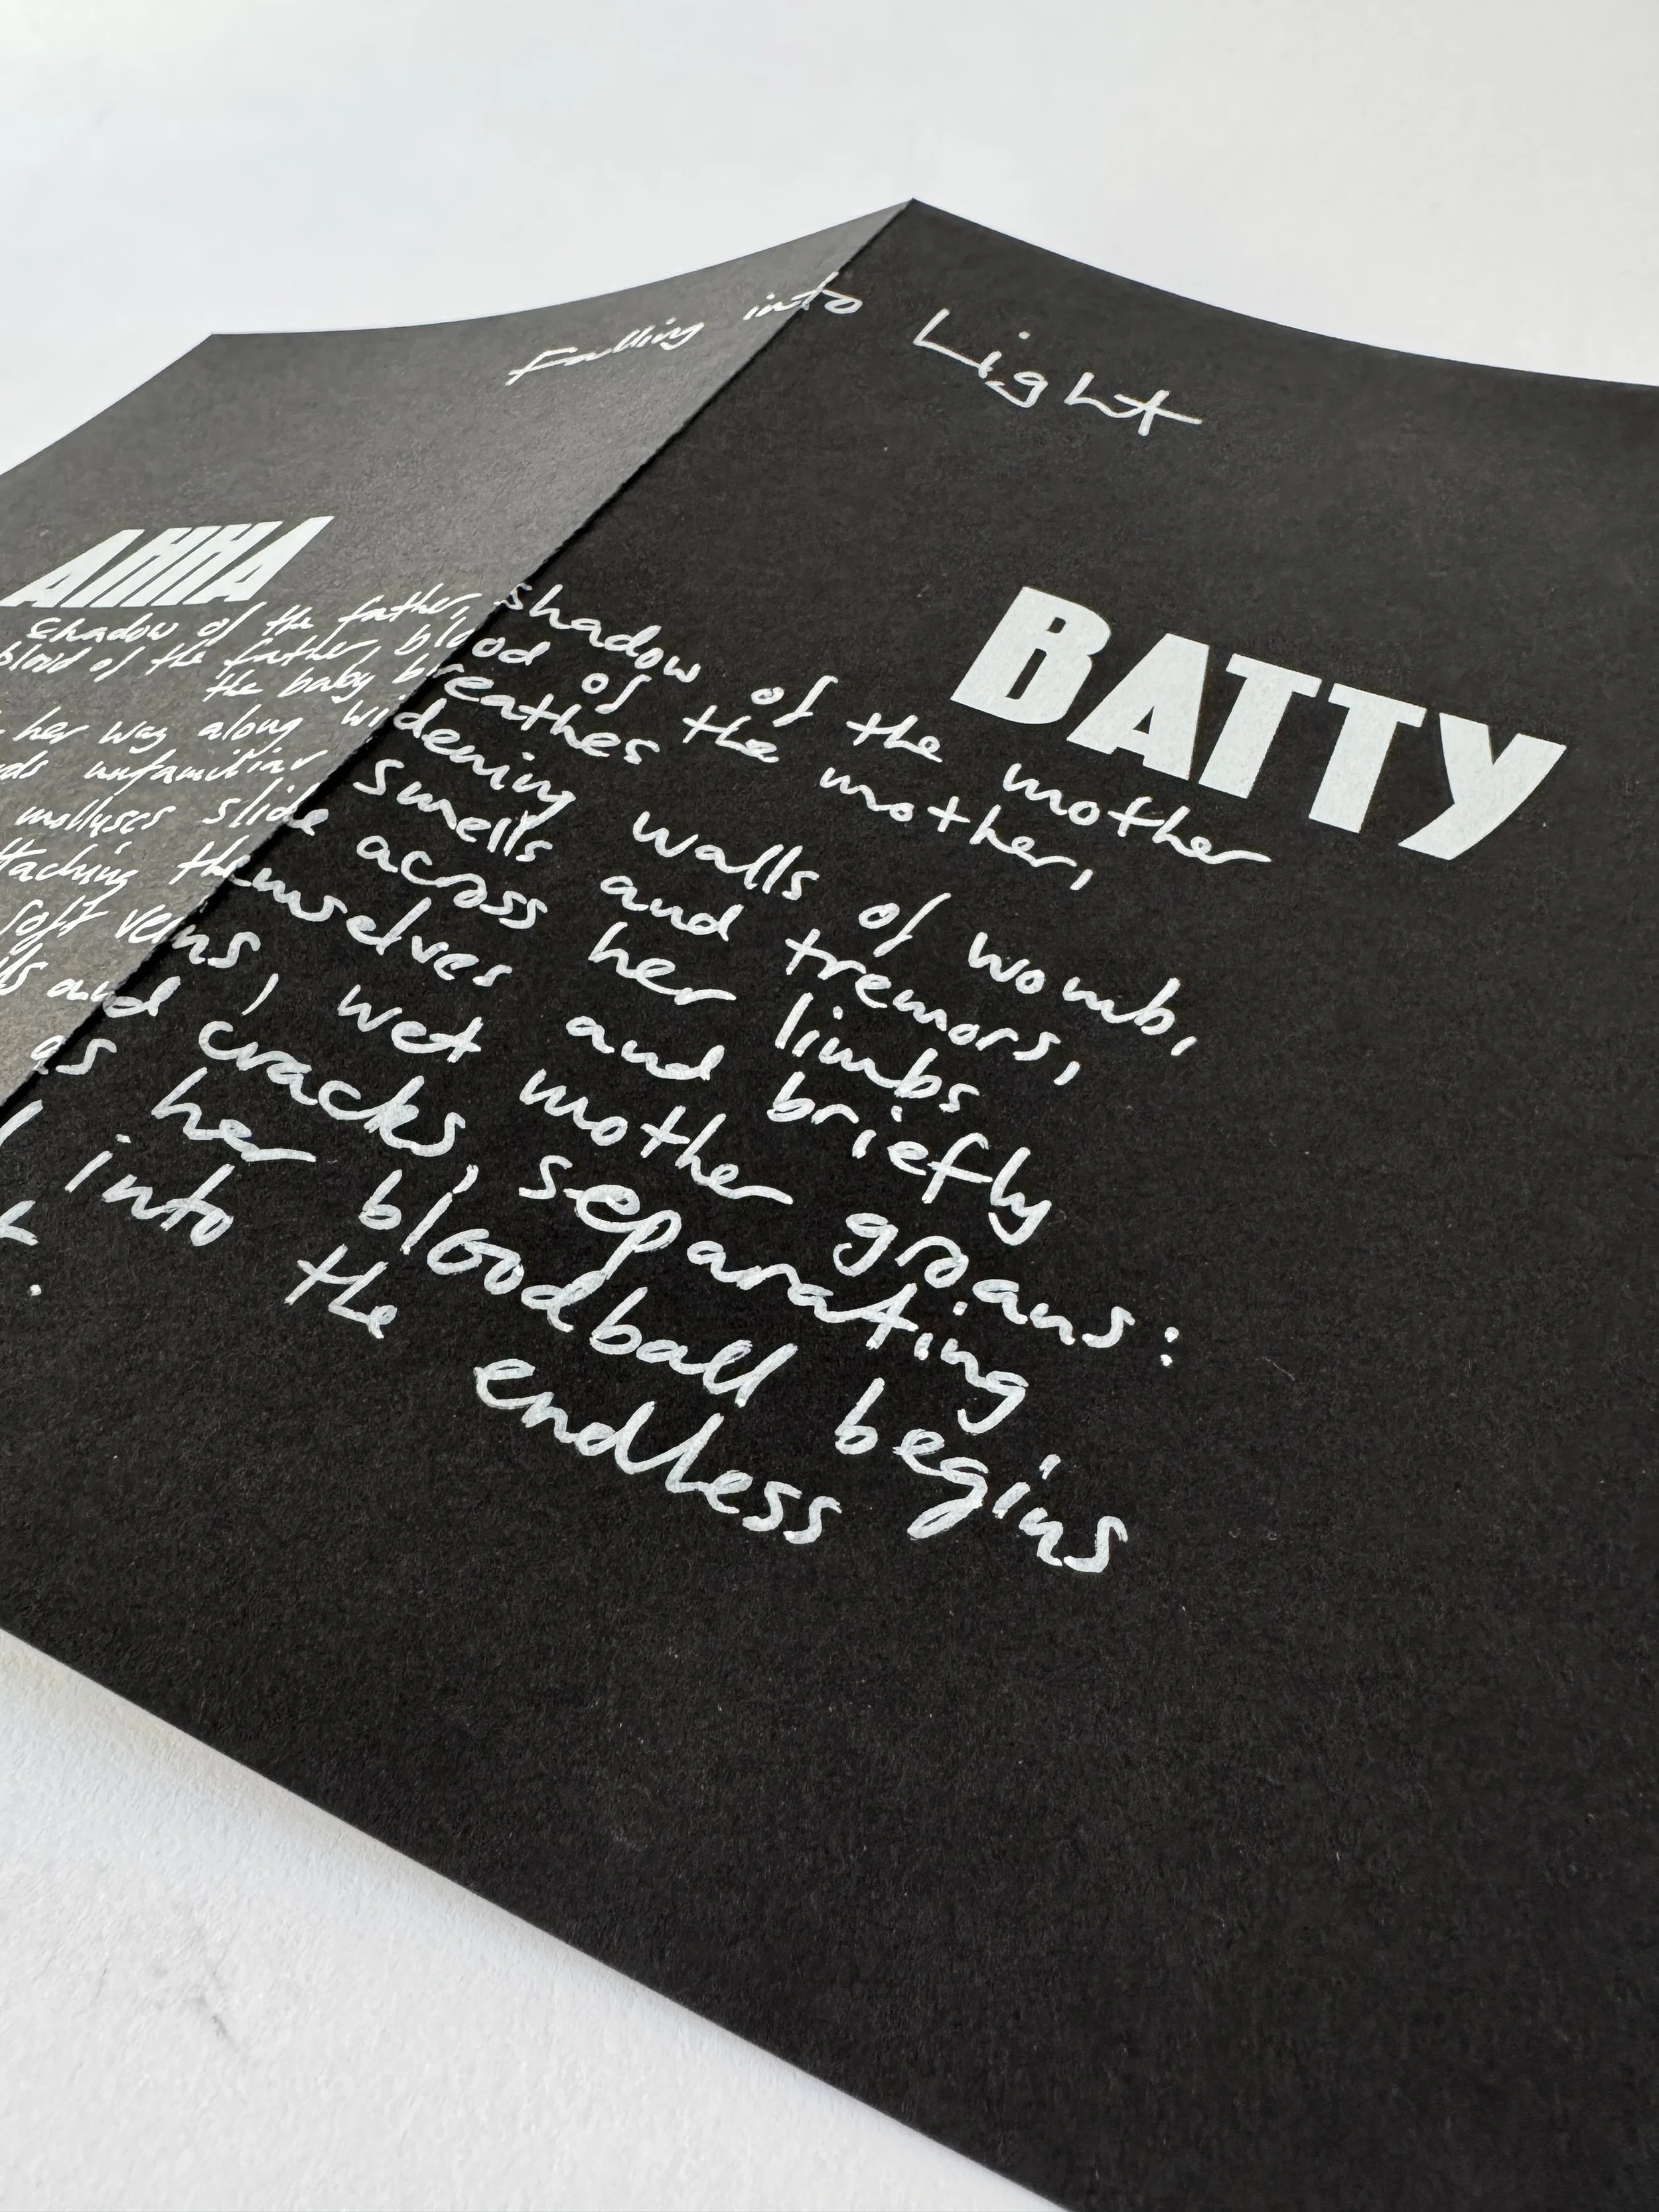 Falling into Light
ANNA BATTY
shadow of the father, shadow of the mother
blood of the father, blood of the mother,
the baby breathes
her way along widening walls of womb,
unfamiliar smells and tremors,
molluscs slide across her limbs
themselves and briefly
soft veins, wet mother groans:
and cracks, separating
as her bloodball begins
into the endless